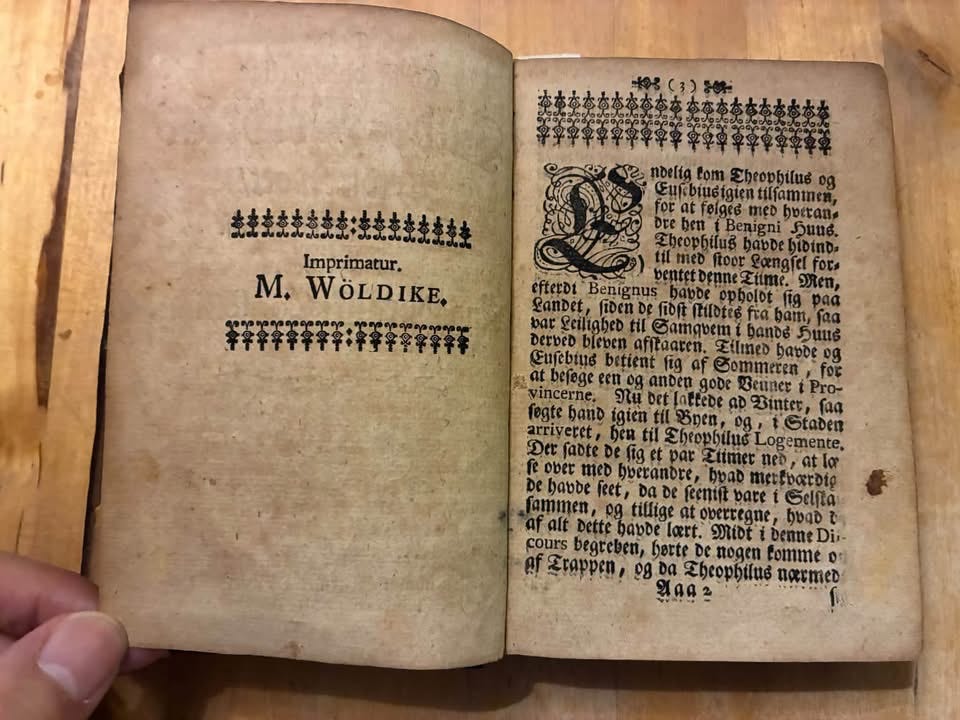 Imprimatur.
M. WÖLDIKE.
(3)
Endelig kom Theophilus og
Eusebius igien tilsammen,
for at følges med hveran-
dre hen i Benigni Huus.
Theophilus havde hidind-
til med stoor Længsel for-
ventet denne Tiime. Men,
efterdi Benignus havde opholdt sig paa
Landet, siden de sidst skildtes fra ham, saa
var Leilighed til Samqvem i hands Huus
derved bleven afskaaren. Tilmed havde og
Eusebius betient sig af Sommeren, for
at besøge een og anden gode Venner i Pro-
vincerne. Nu det lakkede ad Vinter, saa
søgte hand igien til Byen, og, i Staden
arriveret, hen til Theophilus Logemente.
Der sadte de sig et par Tiimer ned, at læ
se over med hverandre, hvad merkværdig
de havde seet, da de seenist vare i Selska
sammen, og tillige at overregne, hvad d
af alt dette havde lært. Midt i denne Di-
cours begreben, hørte de nogen komme o
af Trappen, og da Theophilus nærmed
Aaa 2